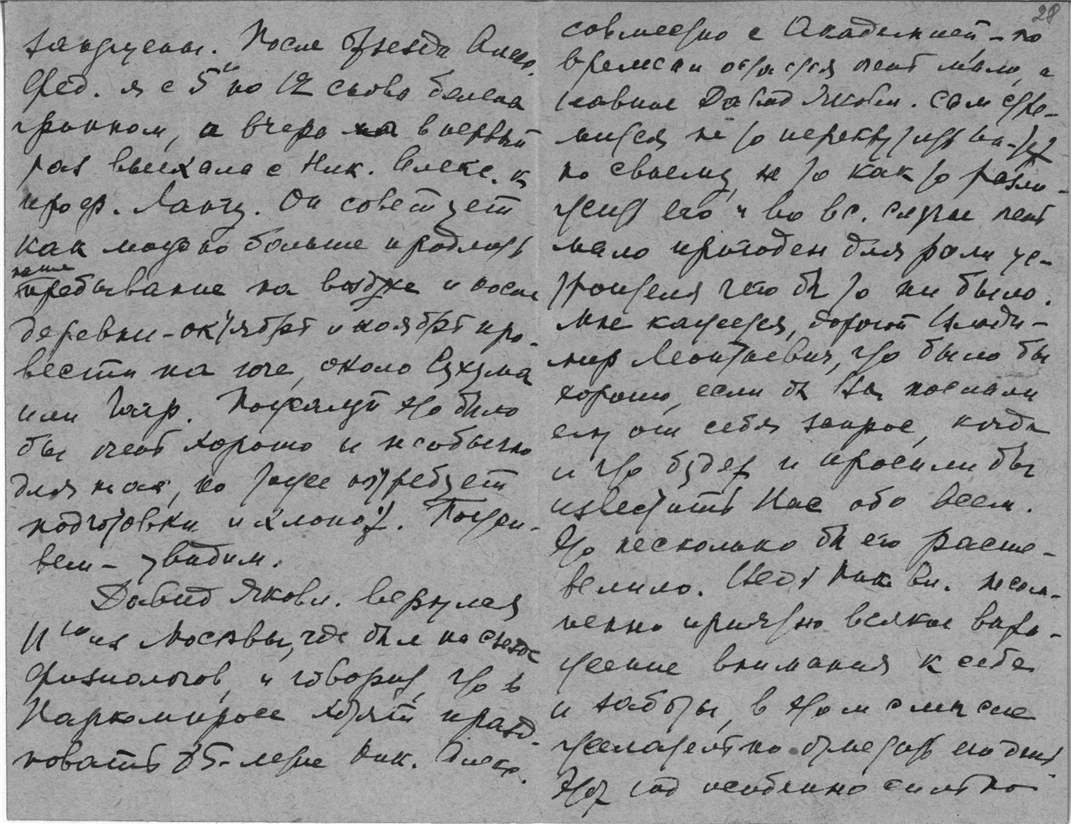 После отъезда Алекс.
Фед. я с 5 по 12 снова болела
гриппом, а вчера в первый
раз выехала с Ник. Алекс. к
проф. Лангу. Он советует
как можно больше продлить
наше
пребывание на воздухе и после
деревни – октябрь и ноябрь про-
вести на юге, около Сухума
или Гагр. Пожалуй это было
бы очень хорошо и необычно
для нас, но тоже потребует
подготовки и хлопот. Пожи-
вем – увидим.
Давид Яковл. вернулся
11го из Москвы, где был на съезде
физиологов, и говорит, что в
Наркомпросе хотят празд-
новать 85-летие Ник. Алекс.
28
совместно с Академией – но
времени остается очень мало, а
главное Давид Яковл. сам
по своему, не то как то
его и во вс. случае очень
мало пригоден для роли ус-
троителя чего бы то ни было.
Мне кажется, дорогой Влади-
мир Леонтьевич, что было бы
хорошо, если бы Вы послали
ему от себя запрос, когда
и что будет и просили бы
известить Вас обо всем.
Это несколько бы его расше-
велило. Ник. Ал. несом-
ненно приятно всякое выра-
жение внимания к себе
и заботы, в этом смысле
желательно отметить его
Этот год особенно сильно